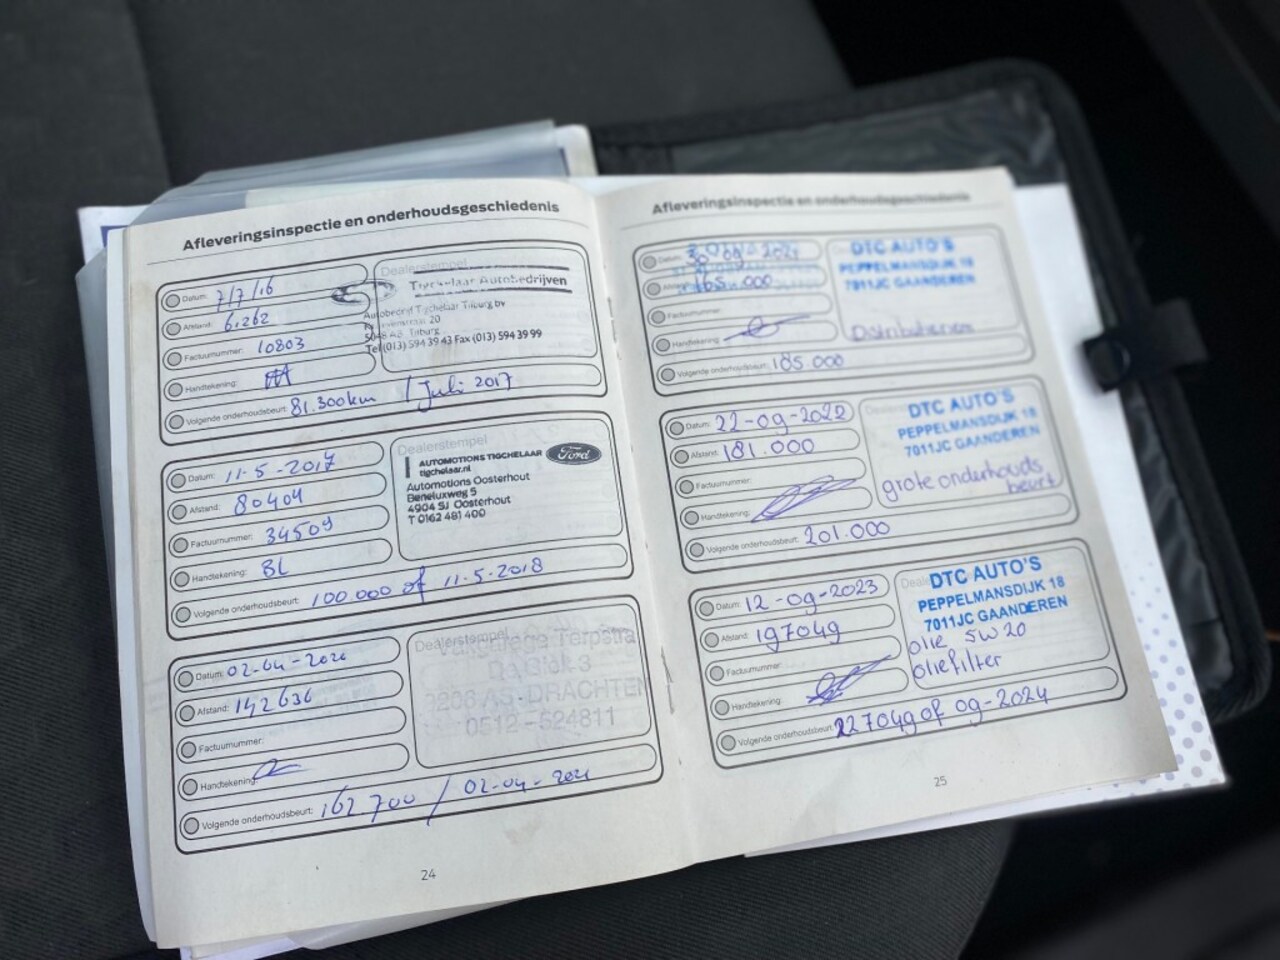 Afleveringsinspectie en onderhoudsgeschiedenis
Datum: 7/7/16
Afstand: 6.262
Factuurnummer: 10803
Handtekening:
Volgende onderhoudsbeurt: 81.300km / Juli 2017
Dealerstempel
Tigchelaar Autobedrijven
Autobedrijf Tigchelaar Tilburg bv
20
Tilburg
Tel (013) 594 39 43 Fax (013) 594 39 99
Datum: 11-5-2017
Afstand: 80404
Factuurnummer: 34509
Handtekening: BL
Volgende onderhoudsbeurt: 100 000 of 11-5-2018
Dealerstempel
AUTOMOTIONS TIGCHELAAR
tigchelaar.nl
Ford
Automotions Oosterhout
Beneluxweg 5
4904 SJ Oosterhout
T 0162 481 400
Datum: 02-04-2020
Afstand: 142636
Factuurnummer:
Handtekening:
Volgende onderhoudsbeurt: 162 700 / 02-04-2021
Dealerstempel
Vakgarage Terpstra
De Blok 3
9206 AS - DRACHTEN
0512 - 524811
24
Afleveringsinspectie en onderhoudsgeschiedenis
Datum: 30-09-2021
Afstand: 165.000
Factuurnummer:
Handtekening:
Volgende onderhoudsbeurt: 185.000
DTC AUTO'S
PEPPELMANSDIJK 18
7011JC GAANDEREN
Distributieriem
Datum: 22-09-2022
Afstand: 181.000
Factuurnummer:
Handtekening:
Volgende onderhoudsbeurt: 201.000
DTC AUTO'S
PEPPELMANSDIJK 18
7011JC GAANDEREN
grote onderhouds
beurt
Datum: 12-09-2023
Afstand: 197049
Factuurnummer:
Handtekening:
Volgende onderhoudsbeurt: 227049 of 09-2024
DTC AUTO'S
PEPPELMANSDIJK 18
7011JC GAANDEREN
olie 5W20
oliefilter
25